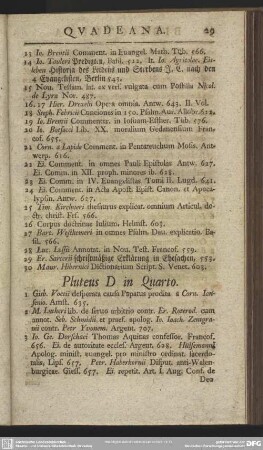 QVADEANA. 29
13 Io. Brentii Comment. in Euangel. Matth. Tüb. 566.
14 Io. Tauleri Predigten, Basil. 522. It. Io. Agricolæ Eisleben Historia des Leidens und Sterbens J. C. nach den 4 Evangelisten, Berlin 543.
15 Nou. Testam. int. ex vers. vulgata cum Postilla Nicol. de Lyra Nor. 487.
16. 17 Hier. Drexelii Opera omnia. Antw. 643. II. Vol.
18 Steph. Fabricii Conciones in 150. Psalm. Aur. Allobr. 622.
19 Io. Brentii Commentar. in Iobum-Esther. Tüb. 576.
20 Io. Busæi Lib. XX. moralium Gedanensium Francof. 655.
21 Corn. a Lapide Comment. in Pentateuchum Mosis. Antwerp. 616.
22 Ei. Comment. in omnes Pauli Epistolas Antw. 627. Ei. Comm. in XII. proph. minores ib. 628.
23 Ei. Comm. in IV. Euangelistas Tomi II. Lugd. 641.
24 Ei. Comment. in Acta Apostt. Epist. Canon. et Apocalypsin. Antw. 627.
25 Tim. Kirchneri thesaurus explicat. omnium Articul. doctr. christ. Frf. 566.
26 Corpus doctrinae Iulium. Helmst. 603.
27 Hier. Weglleueri in omnes Psalm. Dau. explicatio. Basil. 566.
28 Luc. Lossii Annotat. in Nou. Test. Francof. 559.
29 Er. Sarcerii schrifftmäßige Erklärung in Ehesachen, 553.
30 Maur. Hibernici Dictionarium Script. S. Venet. 603.
Pluteus D in Quarto.
1 Gisb. Voetii desperata causa Papatus prodita a Corn. Iansenio. Amst. 635.
2 M. Lutheri lib. de servo arbitrio contr. Er. Roterod. cum annot. Seb. Schmidii et praef. apolog. Io. Ioach. Zentgravii contr. Petr Yvonem. Argent. 707.
3 Io. Ge. Dorschæi Thomas Aquinas confessor. Francof. 656. Ei. de autoritate eccles. Argent. 628. Hülsemanni Apolog. minist. euangel. pro ministro ordinat. sacerdotalis, Lips. 657. Petr. Haberkornii Disput. anti-Walenburgicae. Giess. 657. Ei. repetit. Art. I. Aug. Conf. de
Deo